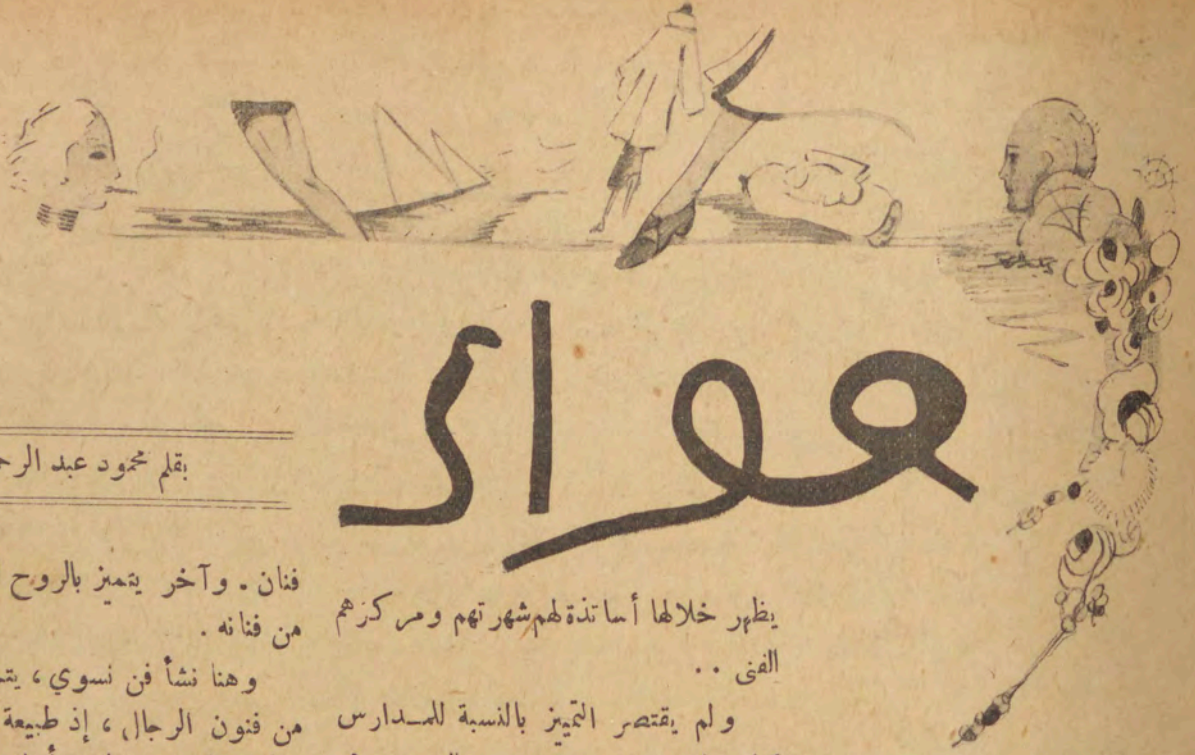 بقلم محمود عبد
يظهر خلالها أساتذة لهم شهرتهم ومركزهم
الفنى ..
ولم يقتصر التمييز بالنسبة للمدارس
فنان . وآخر يتميز بالروح
من فنانه .
وهنا نشأ فن نسوي ،
من فنون الرجال ، إذ طبيعة